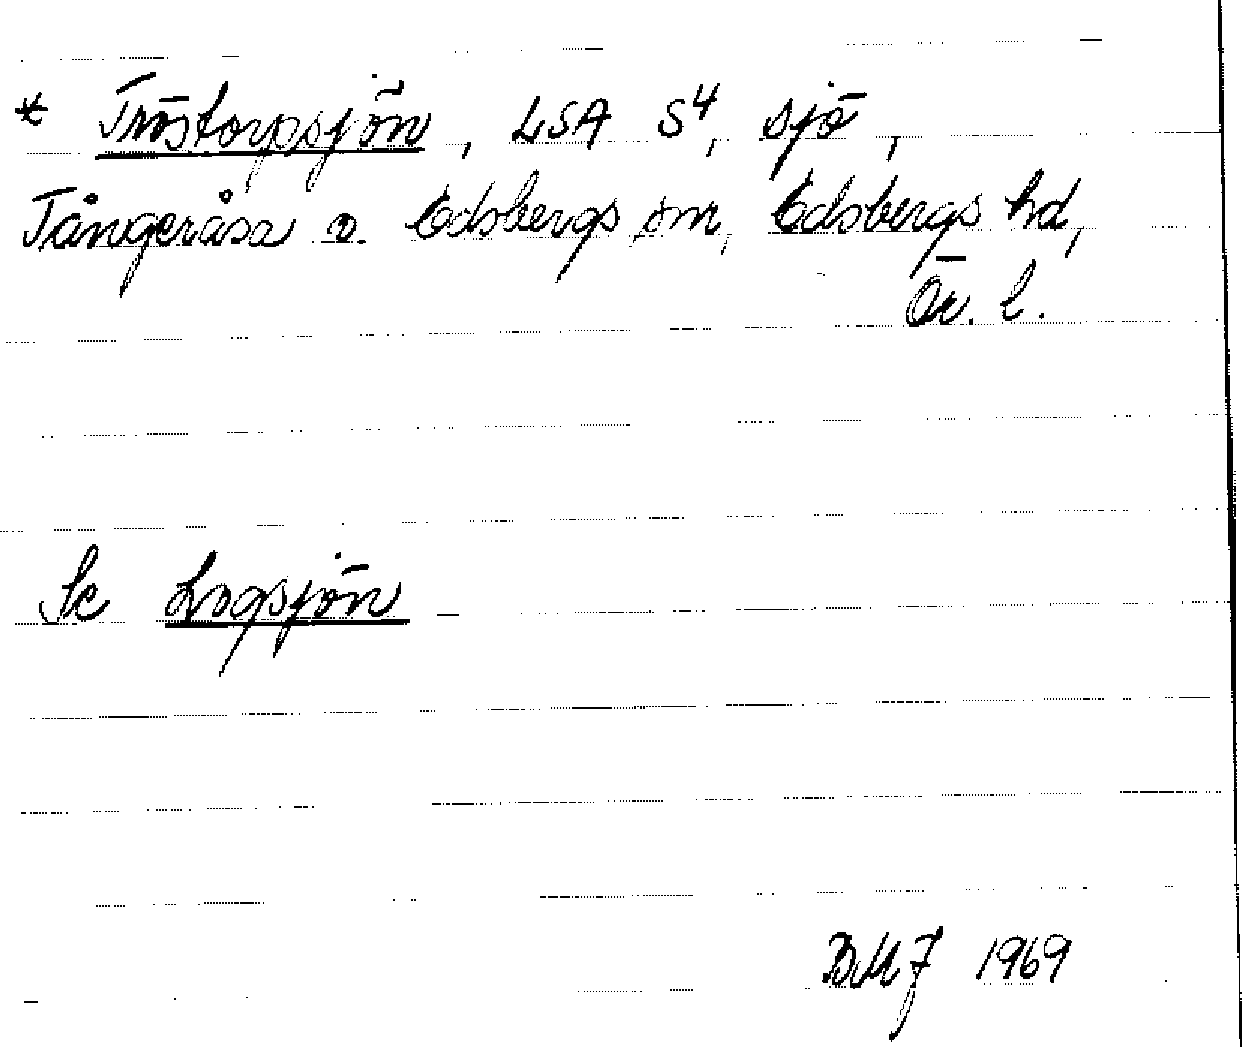 * Tröstorpssjön, LSA S4, sjö,
Tångeråsa o. Edsbergs snr, Edsbergs hd,
Ör. l.
Se Logsjön
BMJ 1969